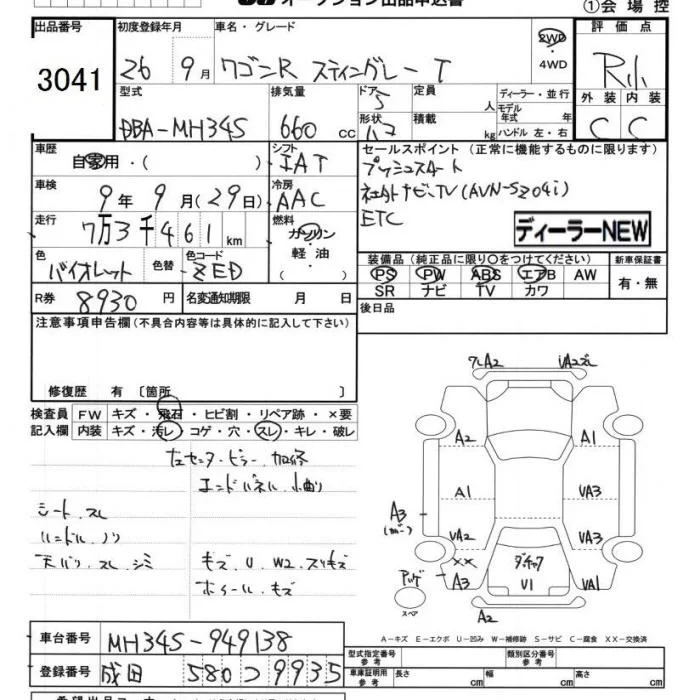 オークション出品申込書
①会場控
出品番号
3041
初度登録年月
26 9月
車名・グレード
ワゴンR スティングレー T
2WD
・
4WD
評価点
R小
外装 内装
C C
型式
DBA-MH34S
排気量
660 cc
ドア
5
形状
ハコ
定員
人
積載
kg
ディーラー・並行
モデル
年式 年
ハンドル 左・右
車歴
自家用・( )
シフト
IAT
セールスポイント (正常に機能するものに限ります)
プッシュスタート
社外ナビ,TV (AVN-SZ04i)
ETC
ディーラーNEW
車検
9年 9月 (29日)
冷房
AAC
走行
7万3千461km
燃料
ガソリン
・
軽油
・
( )
色
バイオレット
色替
色コード
ZED
装備品 (純正品に限り○をつけてください)
PS PW ABS エアB AW
SR ナビ TV カワ
新車保証書
有・無
R券
8930円
名変通知期限 月 日
後日品
注意事項申告欄 (不具合内容等は具体的に記入して下さい)
修復歴 有 〔箇所 〕
検査員
記入欄
FW キズ・飛石・ヒビ割・リペア跡・×要
内装 キズ・汚レ・コゲ・穴・スレ・キレ・破レ
左センターピラー 加修
エンドパネル 小曲り
シート スレ
ハンドル ノリ
天バリ スレ シミ
キズ U W2 スリキズ
ホイール キズ
A2
A2
A2 A1
A1 UA3
A3
UA2 UA3
XX
A3 U1 UA1
スペア
A2
A-キズ E-エクボ U-凹み W-補修跡 S-サビ C-腐食 XX-交換済
車台番号
MH34S-949138
登録番号
成田 580 つ 9935
型式指定番号
参考
類別区分番号
参考
車庫証明用
参考
長さ cm 幅 cm 高さ cm